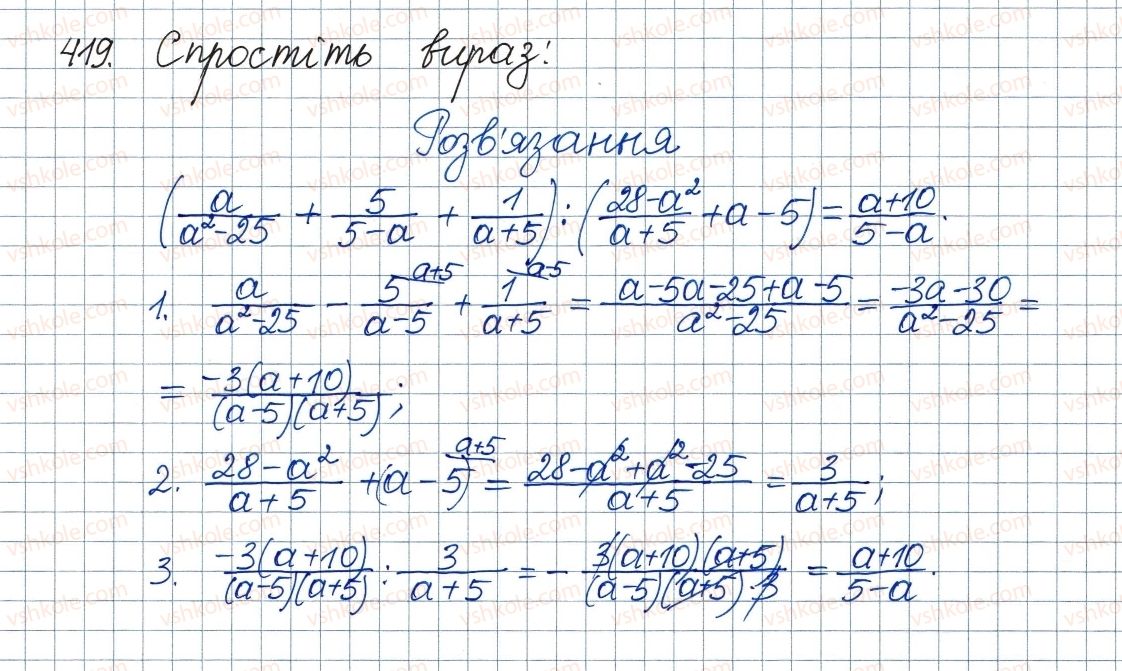 419. Спростіть вираз:
Розв'язання
(a/(a²-25) + 5/(5-a) + 1/(a+5)) : ((28-a²)/(a+5) + a - 5) = (a+10)/(5-a).
1. a/(a²-25) - 5/(a-5) ^(a+5) + 1/(a+5) ^(a-5) = (a-5a-25+a-5)/(a²-25) = (-3a-30)/(a²-25) =
= -3(a+10)/((a-5)(a+5));
2. (28-a²)/(a+5) + (a-5) ^(a+5) = (28-a²+a²-25)/(a+5) = 3/(a+5);
3. -3(a+10)/((a-5)(a+5)) : 3/(a+5) = - 3(a+10)(a+5)/((a-5)(a+5)·3) = (a+10)/(5-a).
vshkole.com